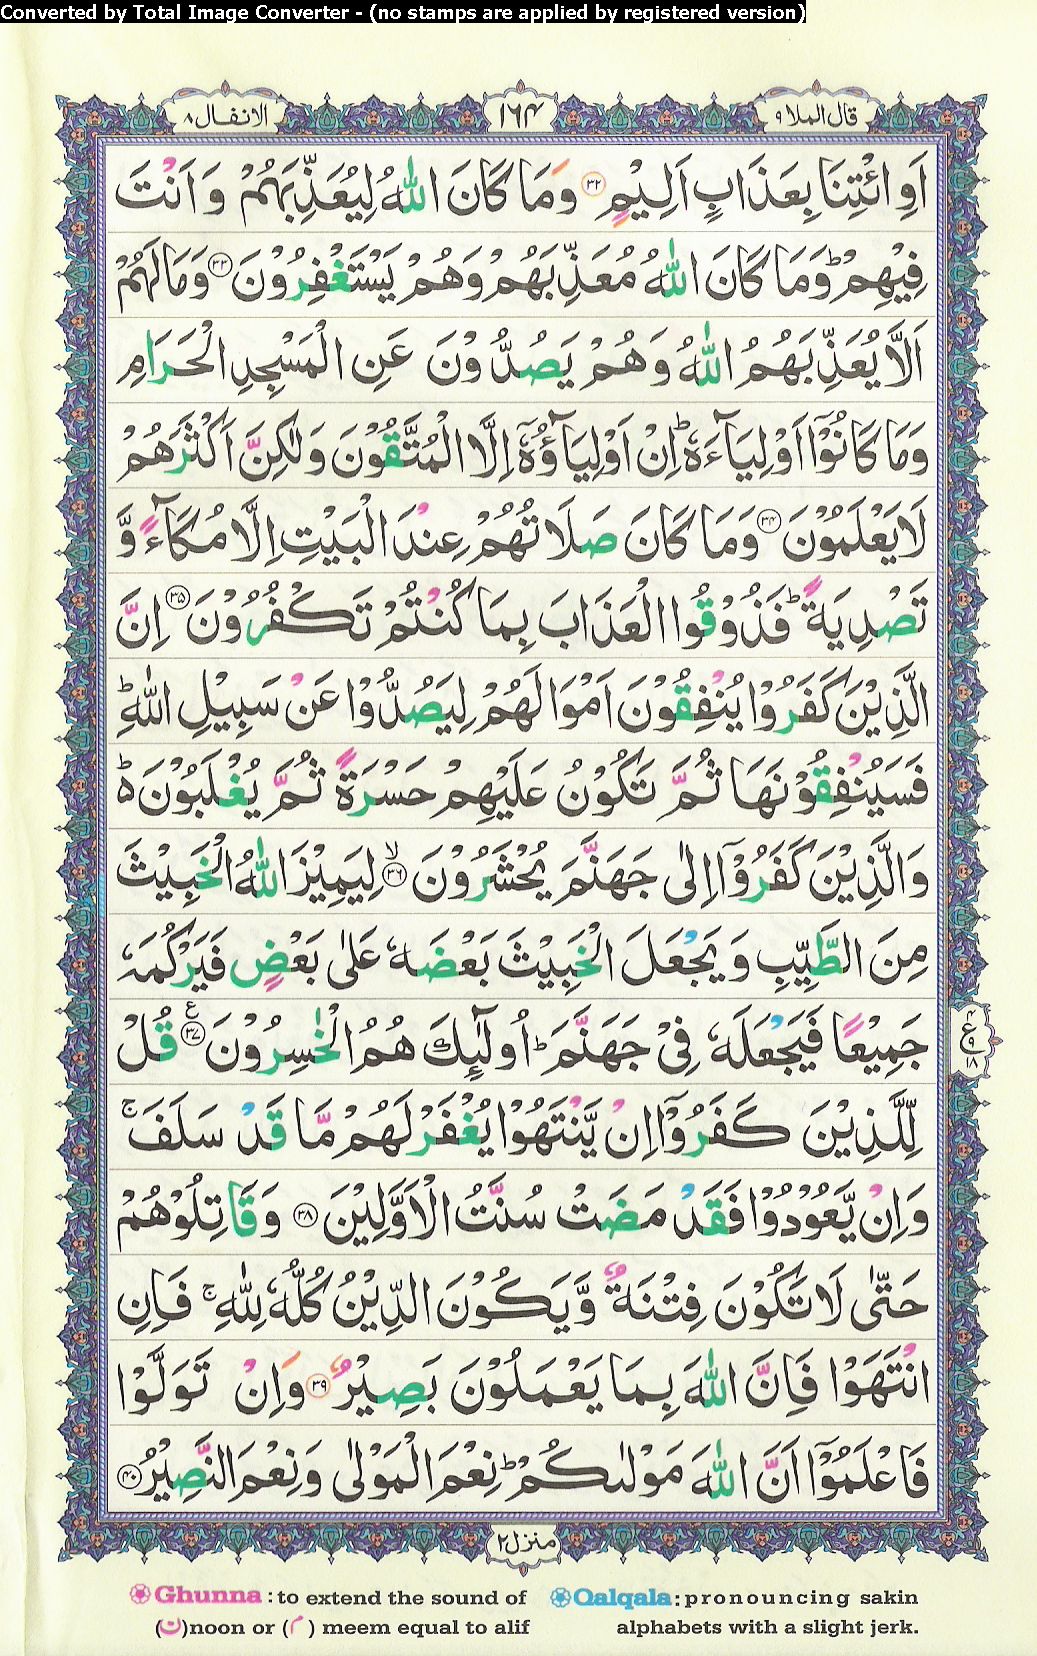 Converted by Total Image Converter - (no stamps are applied by registered version)
قال الملا ۹ ۱۶۴ الانفال ۸
اَوِ ائْتِنَا بِعَذَابٍ اَلِیْمٍ ۳۲ وَمَا كَانَ اللّٰهُ لِیُعَذِّبَهُمْ وَ اَنْتَ
فِیْهِمْ ؕ وَمَا كَانَ اللّٰهُ مُعَذِّبَهُمْ وَهُمْ یَسْتَغْفِرُوْنَ ۳۳ وَمَا لَهُمْ
اَلَّا یُعَذِّبَهُمُ اللّٰهُ وَهُمْ یَصُدُّوْنَ عَنِ الْمَسْجِدِ الْحَرَامِ
وَمَا كَانُوْۤا اَوْلِیَآءَهٗ ؕ اِنْ اَوْلِیَآؤُهٗۤ اِلَّا الْمُتَّقُوْنَ وَلٰكِنَّ اَكْثَرَهُمْ
لَا یَعْلَمُوْنَ ۳۴ وَمَا كَانَ صَلَاتُهُمْ عِنْدَ الْبَیْتِ اِلَّا مُكَآءً وَّ
تَصْدِیَةً ؕ فَذُوْقُوا الْعَذَابَ بِمَا كُنْتُمْ تَكْفُرُوْنَ ۳۵ اِنَّ
الَّذِیْنَ كَفَرُوْا یُنْفِقُوْنَ اَمْوَالَهُمْ لِیَصُدُّوْا عَنْ سَبِیْلِ اللّٰهِ ؕ
فَسَیُنْفِقُوْنَهَا ثُمَّ تَكُوْنُ عَلَیْهِمْ حَسْرَةً ثُمَّ یُغْلَبُوْنَ ؕ۬
وَالَّذِیْنَ كَفَرُوْۤا اِلٰی جَهَنَّمَ یُحْشَرُوْنَ ۙ ۳۶ لِیَمِیْزَ اللّٰهُ الْخَبِیْثَ
مِنَ الطَّیِّبِ وَیَجْعَلَ الْخَبِیْثَ بَعْضَهٗ عَلٰی بَعْضٍ فَیَرْكُمَهٗ
جَمِیْعًا فَیَجْعَلَهٗ فِیْ جَهَنَّمَ ؕ اُولٰٓئِكَ هُمُ الْخٰسِرُوْنَ ۳۷ ع قُلْ
۴ ع ۹ ۱۸
لِّلَّذِیْنَ كَفَرُوْۤا اِنْ یَّنْتَهُوْا یُغْفَرْ لَهُمْ مَّا قَدْ سَلَفَ ۚ
وَاِنْ یَّعُوْدُوْا فَقَدْ مَضَتْ سُنَّتُ الْاَوَّلِیْنَ ۳۸ وَقَاتِلُوْهُمْ
حَتّٰی لَا تَكُوْنَ فِتْنَةٌ وَّیَكُوْنَ الدِّیْنُ كُلُّهٗ لِلّٰهِ ۚ فَاِنِ
انْتَهَوْا فَاِنَّ اللّٰهَ بِمَا یَعْمَلُوْنَ بَصِیْرٌ ۳۹ وَاِنْ تَوَلَّوْا
فَاعْلَمُوْۤا اَنَّ اللّٰهَ مَوْلٰىكُمْ ؕ نِعْمَ الْمَوْلٰی وَنِعْمَ النَّصِیْرُ ۴۰
منزل ۲
Ghunna : to extend the sound of (ن)noon or (م) meem equal to alif
Qalqala : pronouncing sakin alphabets with a slight jerk.